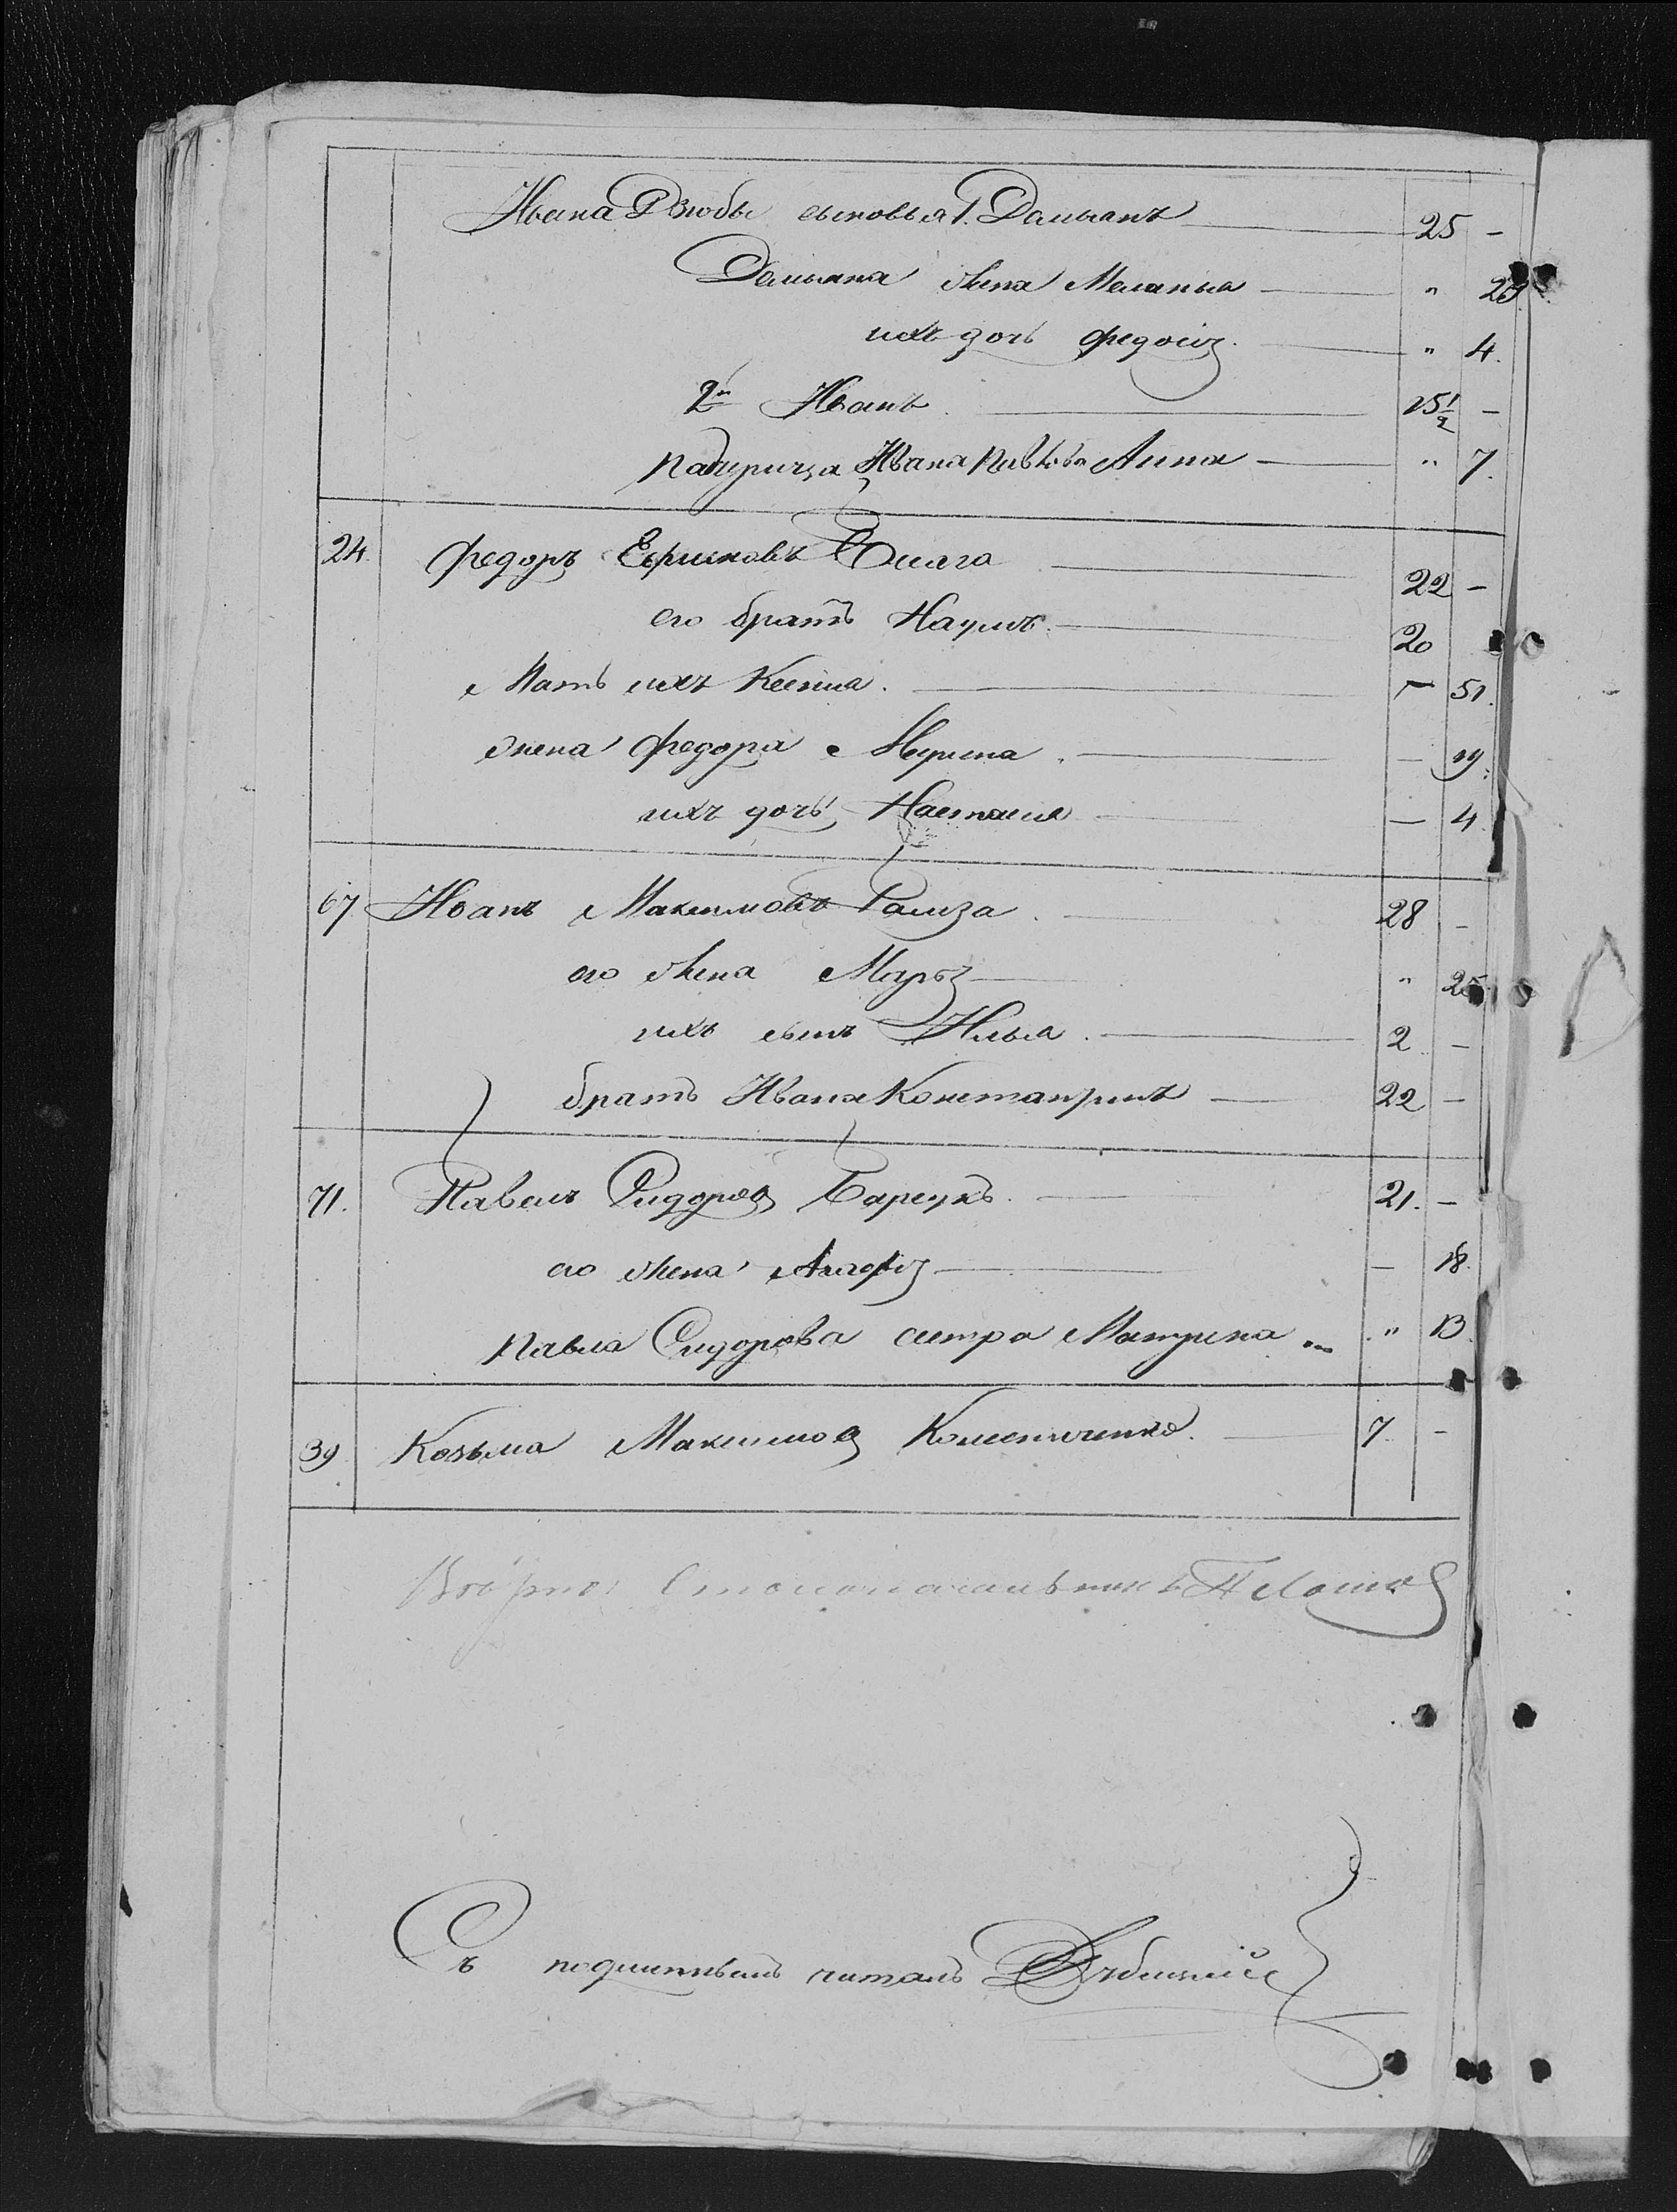 Ивана Дзюбы сыновья 1. Демьянъ — 25 —
Демьяна жена Меланья — " 29.
ихъ дочь Федосiя. — " 4.
2й Иванъ. — 15½ —
падчерица Ивана Анна — " 7.
24. Федоръ Ефимовъ — 22 —
его братъ Наумъ. — 20
Мать ихъ Ксенiя. — — 51.
жена Федора Ирина. — — 19.
ихъ дочь Настасья — — 4
67 Иванъ Максимовъ — 28 —
его жена Марья — " 25.
ихъ сынъ Илья. — 2 —
братъ Ивана Константинъ — 22 —
71. Павелъ Сидоровъ Барсукъ. — 21. —
его жена Агафiя — — 18.
Павла Сидорова сестра Матрена " 13.
39 Козьма Максимовъ 7. —
Вѣрно: Столоначальникъ
Съ подлиннымъ читалъ